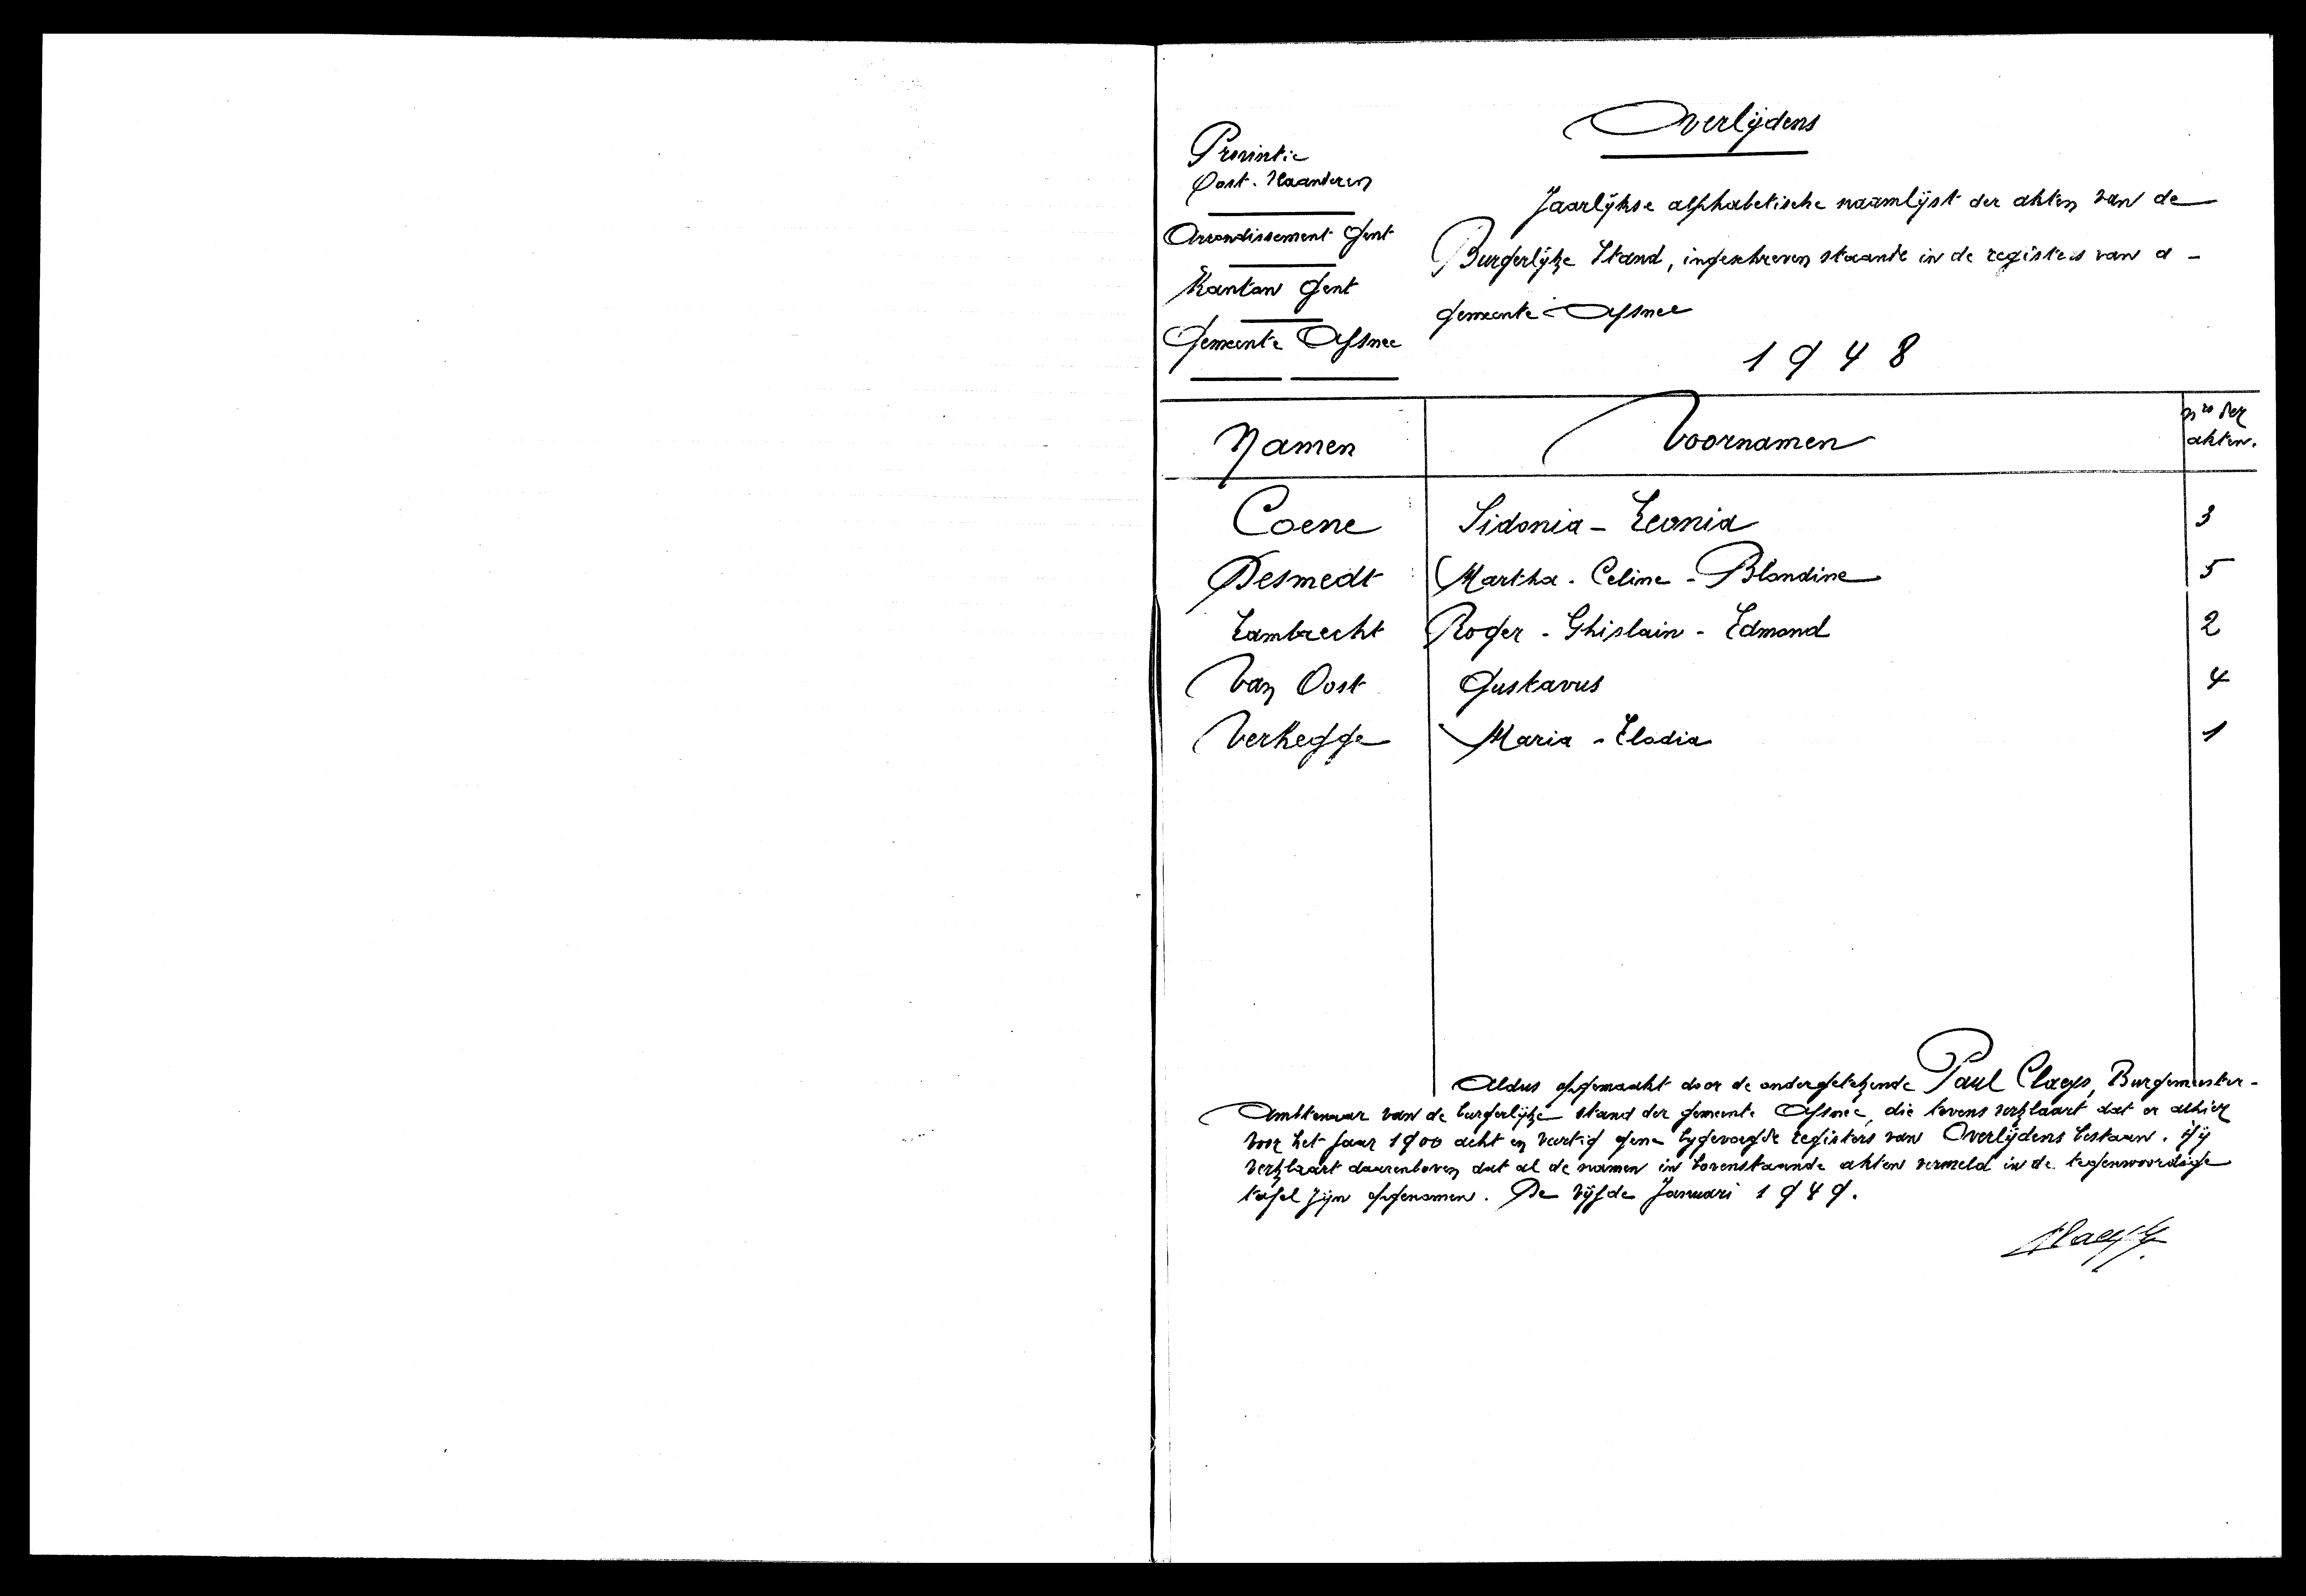 Overlijdens
Provintie
Oost-Vlaanderen
Arrondissement Gent
Kanton Gent
Gemeente Afsnee
Jaarlijkse alphabetische naamlijst der akten van de
Burgerlijke Stand, ingeschreven staande in de registers van d -
gemeente Afsnee
1948
Namen Voornamen nrs der akten.
Coene Sidonia - Leonia 3
Desmedt Martha - Celine - Blandine 5
Lambrecht Roger - Ghislain - Edmond 2
Van Oost Gustavus 4
Verhegge Maria - Elodia 1
Aldus opgemaakt door de ondergetekende Paul Claeys, Burgemeester-
Ambtenaar van de burgerlijke stand der gemeente Afsnee, die tevens verklaart dat er alhier
voor het jaar 1900 acht en veertig gene bijgevoegde registers van Overlijdens bestaan. Hij
verklaart daarenboven dat al de namen in bovenstaande akten vermeld in de tegenwoordige
tafel zijn opgenomen. De vijfde Januari 1949.